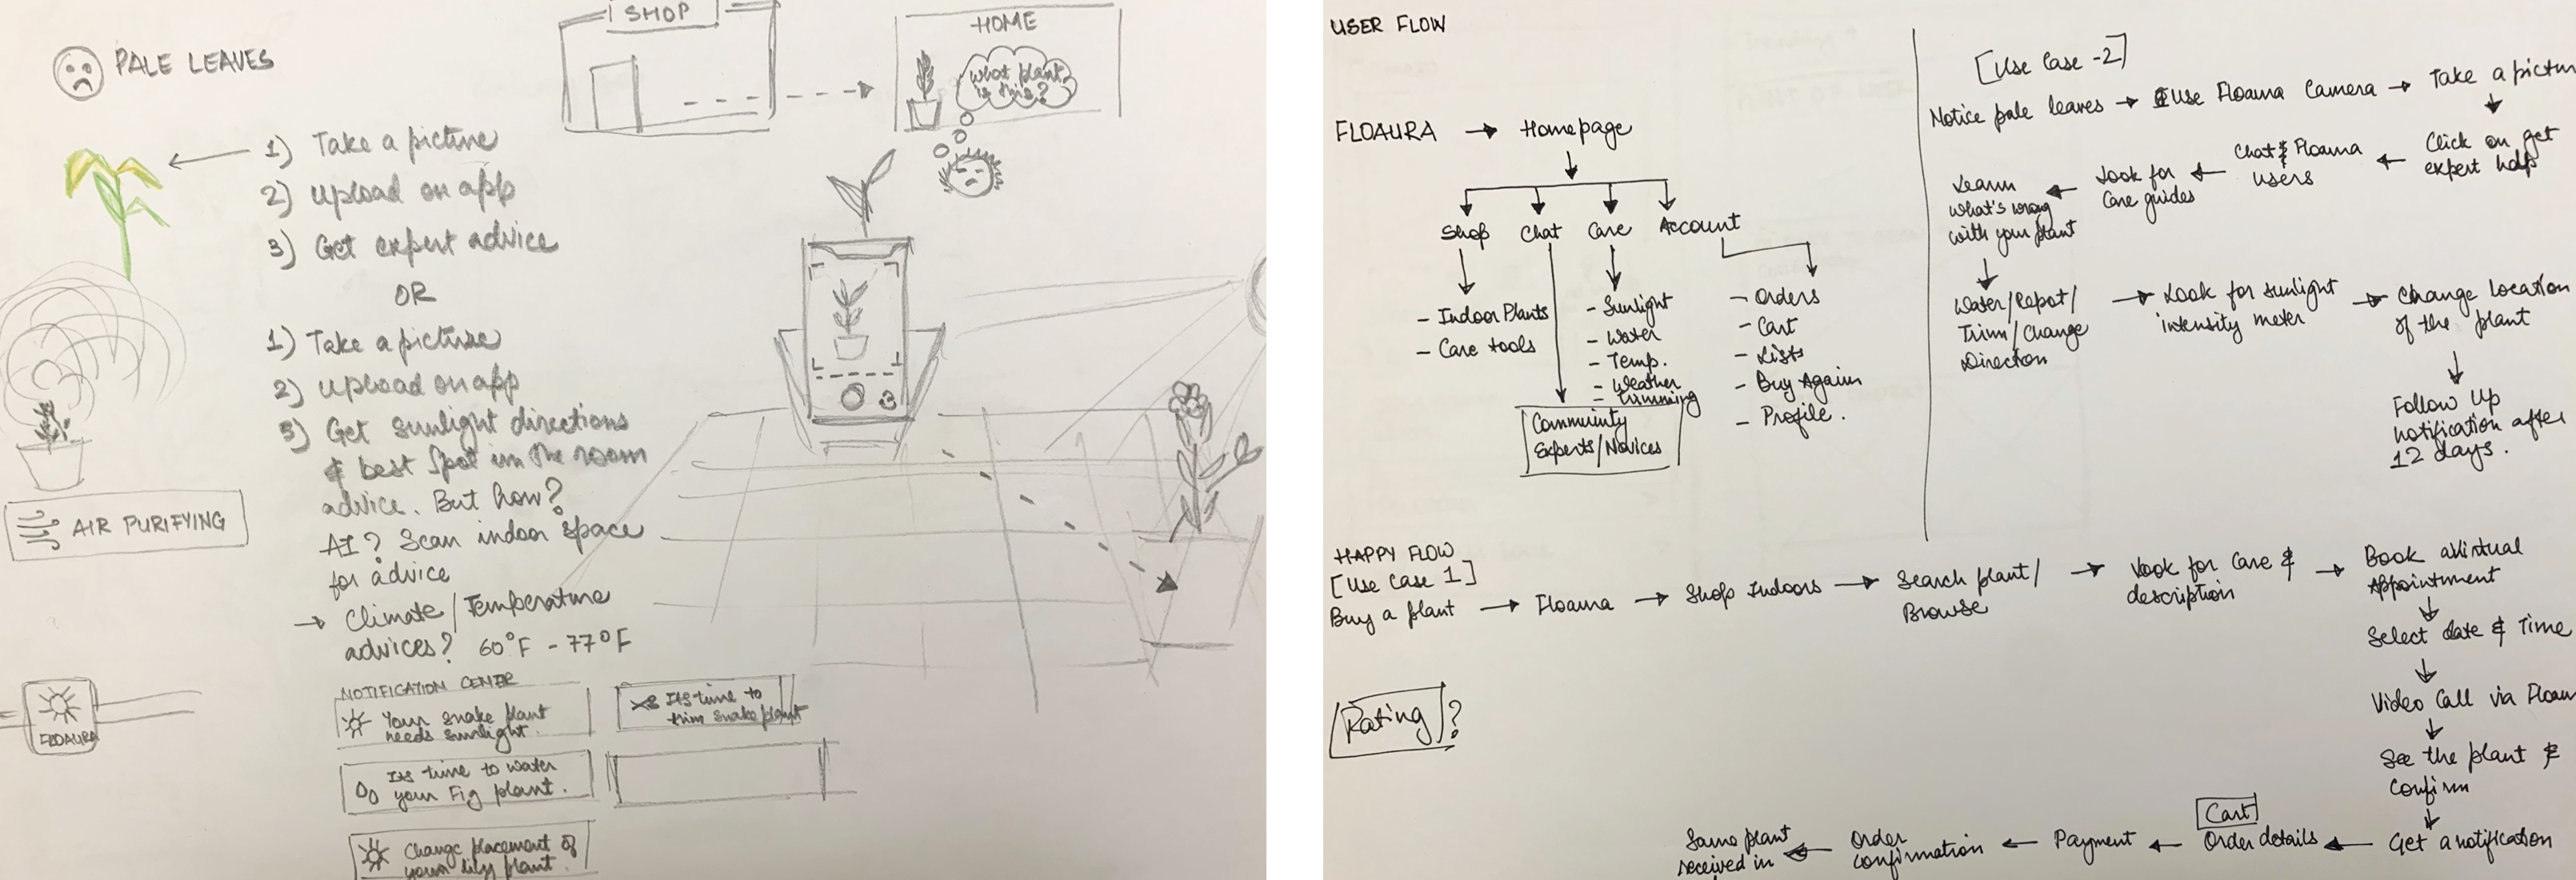 SHOP
HOME
What plant
is this?
PALE LEAVES
1) Take a picture
2) Upload on app
3) Get expert advice
OR
1) Take a picture
2) Upload on app
3) Get sunlight directions
& best spot in the room
advice. But how?
AI? Scan indoor space
for advice
→ Climate/Temperature
advices? 60°F - 77°F
AIR PURIFYING
FLOAURA
NOTIFICATION CENTER
Your snake plant
needs sunlight.
Its time to
trim snake plant
Its time to water
your Fig plant.
Change placement of
your lily plant.
USER FLOW
FLOAURA → Homepage
Shop
Chat
Care
Account
- Indoor Plants
- Care tools
Community
Experts/Novices
- Sunlight
- Water
- Temp.
- Weather
- Trimming
- Orders
- Cart
- Lists
- Buy Again
- Profile.
[Use Case -2]
Notice pale leaves → Use Floaura Camera → Take a pictur
Click on get
expert help
Chat & Floaura
users
Look for
Care guides
Learn
what's wrong
with your plant
Water/Repot/
Trim/Change
Direction
→ Look for sunlight
intensity meter
→ Change location
of the plant
Follow Up
notification after
12 days.
HAPPY FLOW
[Use Case 1]
Buy a plant → Floaura → Shop Indoors → Search plant/
Browse
→ Look for Care &
description
→ Book a Virtual
Appointment
Select date & Time
Video Call via Floau
See the plant &
Confirm
Get a notification
Cart
Order details
Payment
Order
Confirmation
Same plant
received in
[Rating]?